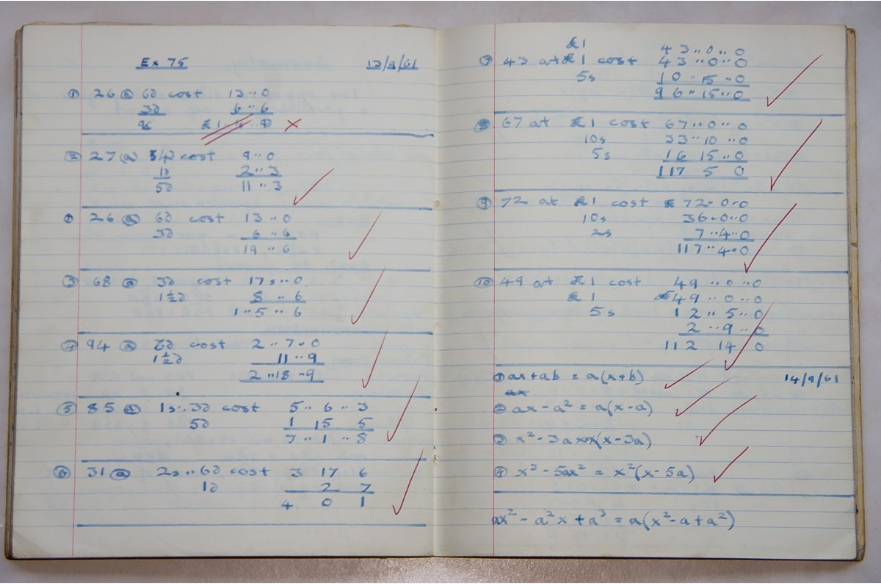 Ex 75 12/9/61
① 26 @ 6d cost 13..0
3d 6..6
9d
② 27 @ 4d cost 9..0
1d 2..3
5d 11..3
① 26 @ 6d cost 13..0
3d 6..6
19..6
③ 68 @ 3d cost 17s..0
1½d 8..6
1..5..6
④ 94 @ 6d cost 2..7..0
1½d 11..9
2..18..9
⑤ 85 @ 1s..3d cost 5..6..3
5d 1 15 5
7..1..8
⑥ 31 @ 2s..6d cost 3 17 6
1d 2 7
4 0 1
£1 43..0..0
⑦ 43 at £1 cost 43..0..0
5s 10..15..0
96..15..0
⑧ 67 at £1 cost 67..0..0
10s 33..10..0
5s 16 15..0
117 5 0
⑨ 72 at £1 cost £72-0-0
10s 36-0-0
2s 7..4..0
117..4..0
⑩ 49 at £1 cost 49..0..0
£1 49..0..0
5s 12..5..0
2..9..0
112 14 0
① ax+ab = a(x+b) 14/9/61
② ax-a² = a(x-a)
③ x²-3ax x(x-3a)
④ x³-5ax² = x²(x-5a)
ax²-a²x+a³ = a(x²-a+a²)